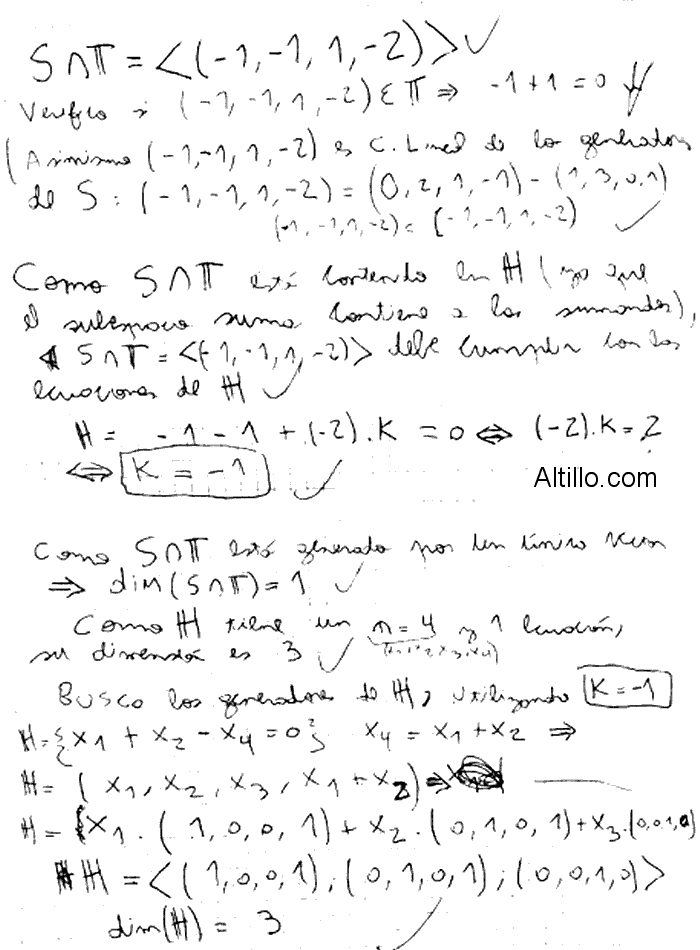 S∩T = <(-1, -1, 1, -2)> ✓
Verifico si (-1, -1, 1, -2) ∈ T ⇒ -1 + 1 = 0
(Asimismo (-1, -1, 1, -2) es C. Lineal de los generadores
de S: (-1, -1, 1, -2) = (0, 2, 1, -1) - (1, 3, 0, 1)
(-1, -1, 1, -2) = (-1, -1, 1, -2) ✓
Como S∩T está contenido en H (ya que
el subespacio suma contiene a los sumandos),
S∩T = <(-1, -1, 1, -2)> debe cumplir con las
ecuaciones de H ✓
H = -1 - 1 + (-2). K = 0 ⇔ (-2). K = 2
⇔ K = -1 ✓
Altillo.com
Como S∩T está generado por un único vector
⇒ dim(S∩T) = 1 ✓
Como H tiene un n = 4 y 1 ecuación,
su dimensión es 3 ✓
Busco los generadores de H, utilizando K = -1
H = {x1 + x2 - x4 = 0} x4 = x1 + x2 ⇒
H = (x1, x2, x3, x1 + x2) ⇒
H = {x1 . (1, 0, 0, 1) + x2 . (0, 1, 0, 1) + x3 . (0, 0, 1, 0)
H = <(1, 0, 0, 1); (0, 1, 0, 1); (0, 0, 1, 0)>
dim(H) = 3 ✓